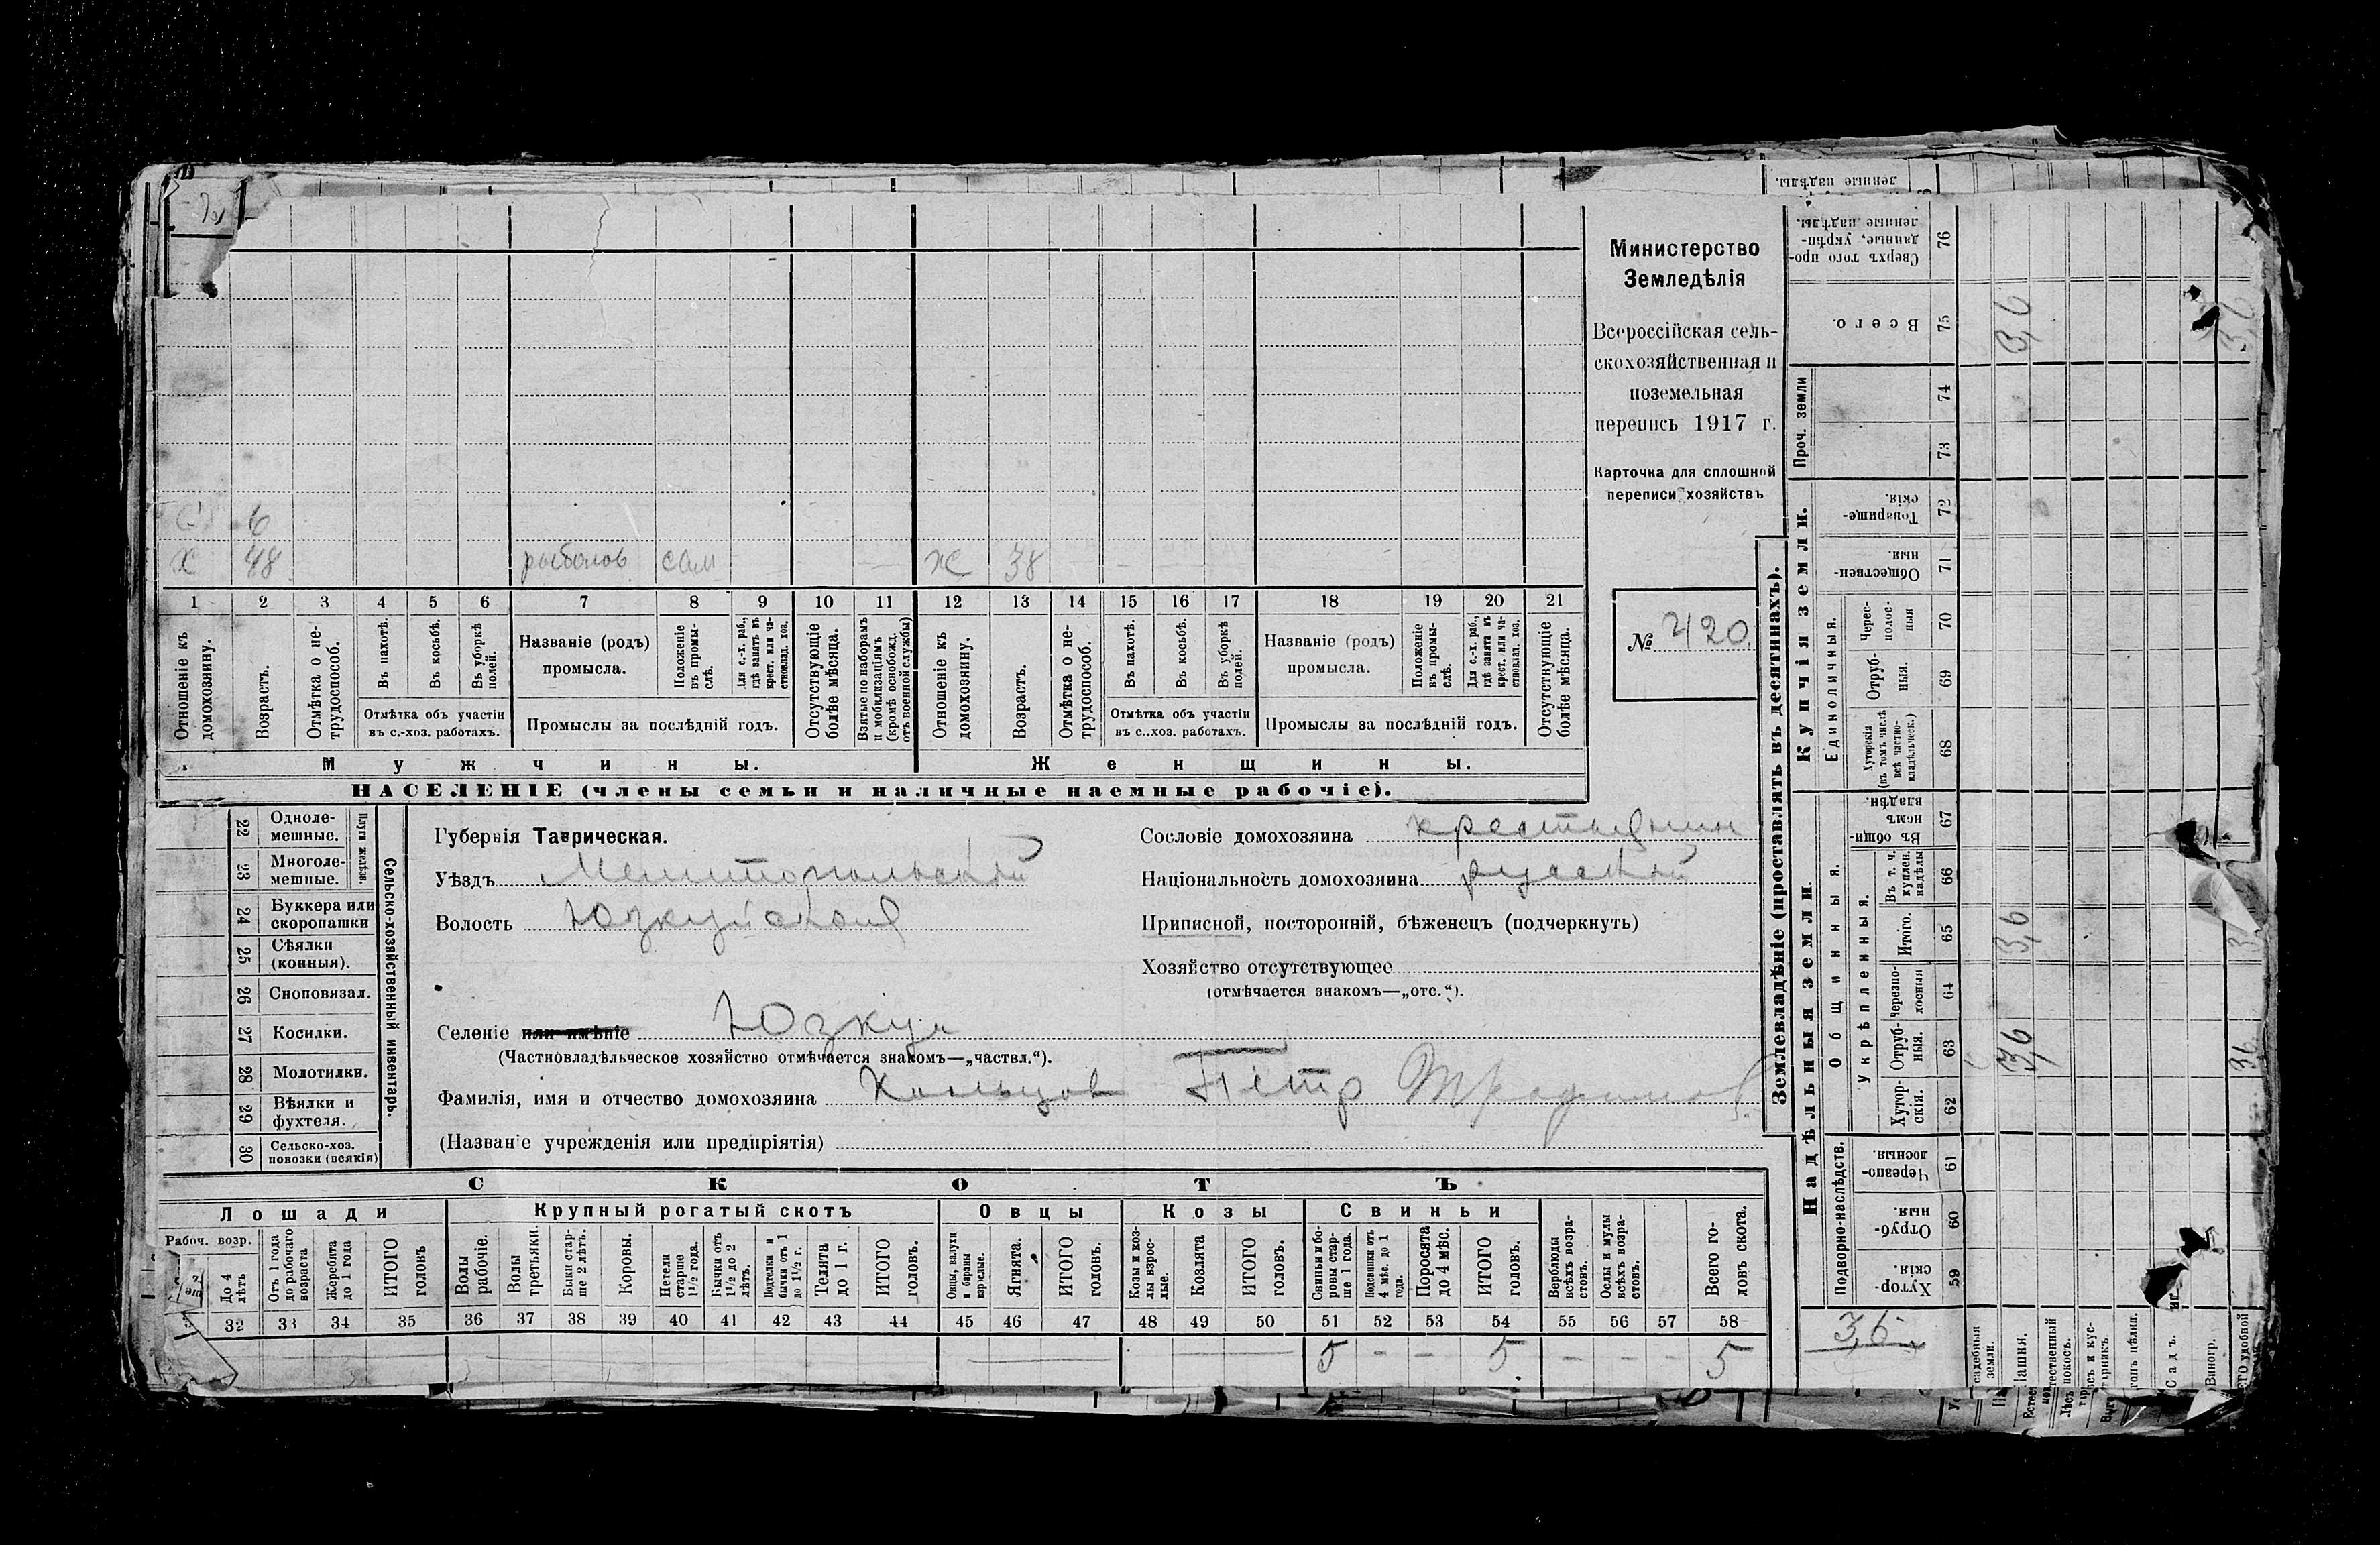 Министерство
Земледѣлія
Всероссійская сель-
скохозяйственная и
поземельная
перепись 1917 г.
Карточка для сплошной
переписи хозяйствъ
№ 420
С 6
Х 48 рыболов сам Ж 38
1 2 3 4 5 6 7 8 9 10 11 12 13 14 15 16 17 18 19 20 21
Отношеніе къ домохозяину.
Возрастъ.
Отмѣтка о не-трудоспособ.
Въ пахотѣ.
Въ косьбѣ.
Въ уборкѣ полей.
Отмѣтка объ участіи
въ с.-хоз. работахъ.
Названіе (родъ)
промысла.
Положеніе въ промы-слѣ.
Для с.-х. раб., гдѣ занятъ въ крест. или ча-стновлад. хоз.
Промыслы за послѣдній годъ.
Отсутствующіе болѣе мѣсяца.
Взятые по наборамъ и мобилизаціямъ (кромѣ освобожд. отъ военной службы)
Отношеніе къ домохозяину.
Возрастъ.
Отмѣтка о не-трудоспособ.
Въ пахотѣ.
Въ косьбѣ.
Въ уборкѣ полей.
Отмѣтка объ участіи
въ с..хоз. работахъ.
Названіе (родъ)
промысла.
Положеніе въ промы-слѣ.
Для с.-х. раб., гдѣ занята въ крест. или ча-стновлад. хоз.
Промыслы за послѣдній годъ.
Отсутствующіе болѣе мѣсяца.
Мужчины. Женщины.
НАСЕЛЕНІЕ (члены семьи и наличные наемные рабочіе).
22 Одноле-мешные.
23 Многоле-мешные.
Плуги желѣзн.
24 Буккера или скоропашки
25 Сѣялки (конныя).
26 Сноповязал.
27 Косилки.
28 Молотилки.
29 Вѣялки и фухтеля.
30 Сельско-хоз. повозки (всякія)
Сельско-хозяйственный инвентарь.
Губернія Таврическая.
Уѣздъ Мелитопольский
Волость Юзкуйская
Селеніе или имѣніе Юзкуи
(Частновладѣльческое хозяйство отмѣчается знакомъ—„частвл.“).
Фамилія, имя и отчество домохозяина Кольцов Петр
(Названіе учрежденія или предпріятія)
Сословіе домохозяина крестьянин
Національность домохозяина русский
Приписной, посторонній, бѣженецъ (подчеркнуть)
Хозяйство отсутствующее
(отмѣчается знакомъ—„отс.“).
СКОТЪ
Лошади Крупный рогатый скотъ Овцы Козы Свиньи
Рабоч. возр.
До 4 лѣтъ
Отъ 1 года до рабочаго возраста
Жеребята до 1 года
ИТОГО головъ
Волы рабочіе.
Волы третьяки.
Быки стар-ше 2 лѣтъ.
Коровы.
Нетели старше 1½ года.
Бычки отъ 1½ до 2 лѣтъ.
Подтелки и бычки отъ 1 до 1½ г.
Телята до 1 г.
ИТОГО головъ.
Овцы, валухи и бараны взрослые.
Ягнята.
ИТОГО головъ.
Козы и коз-лы взрос-лые.
Козлята
ИТОГО головъ.
Свиньи и бо-ровы стар-ше 1 года.
Подсвинки отъ 4 мѣс. до 1 года.
Поросята до 4 мѣс.
ИТОГО головъ.
Верблюды всѣхъ возра-стовъ.
Ослы и мулы всѣхъ возра-стовъ.
Всего го-ловъ скота.
32 33 34 35 36 37 38 39 40 41 42 43 44 45 46 47 48 49 50 51 52 53 54 55 56 57 58
5 - - 5 - - 5
Землевладѣніе (проставлять въ десятинахъ).
Надѣльныя земли. Купчія земли.
Проч. земли
Подворно-наслѣдств.
Общинныя.
Укрѣпленныя.
Единоличныя.
Хутор-скія. 59
Отруб-ныя. 60
Черезпо-лосныя. 61
Хутор-скія. 62
Отруб-ныя. 63 3,6
Черезпо-лосныя 64
Итого. 65 3,6
Въ т. ч. куплен. надѣлы 66
Въ общи-номъ владѣн. 67
Хуторскія (въ томъ числѣ всѣ частно-владѣльческ.) 68
Отруб-ныя. 69
Черес-полос-ныя 70
Обществен-ныя. 71
Товарище-скія. 72
73
74
Всего. 75 3,6 3,6
Сверхъ того про-данные, укрѣп-ленные надѣлы. 76
ленные надѣлы.
3,6
земли.
Пашня.
Садъ.
Виногр.